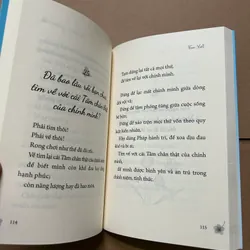 Đã bao lâu rồi bạn chưa
tìm về với cái Tâm chân thật
của chính mình?
Phải tìm thôi!
Phải về thôi!
Rong chơi như thế đủ rồi.
Về tìm lại cái Tâm chân thật của chính mình,
để biết mình còn khổ đau hay
hạnh phúc;
còn năng lượng hay đã hao mòn
114
Tạm dừng lại tất cả mọi thứ,
để tìm về lại với chính mình.
Đừng để lạc mất chính mình giữa dòng
đời vội vã;
Đừng để tâm phóng túng giữa cuộc sống
bộn bề;
Đừng để sầu não trước mọi thứ vốn theo quy
luật hiển nhiên;
Hãy dùng Pháp hành trì, để xoa dịu đau
khổ và bi ai,
Tìm về với cái Tâm chân thật của chính
mình,
để mình được bình yên và an trú trong
chánh niệm, tỉnh thức.
115